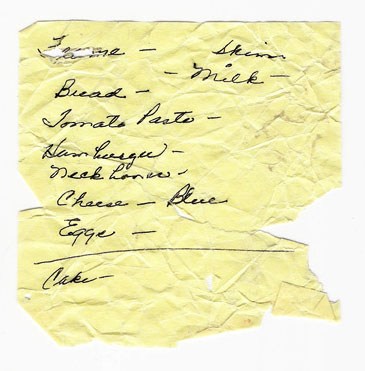 Skim
- Milk -
Bread -
Tomato Paste -
Hamburger -
Neck bones -
Cheese - Blue
Eggs -
Cake -